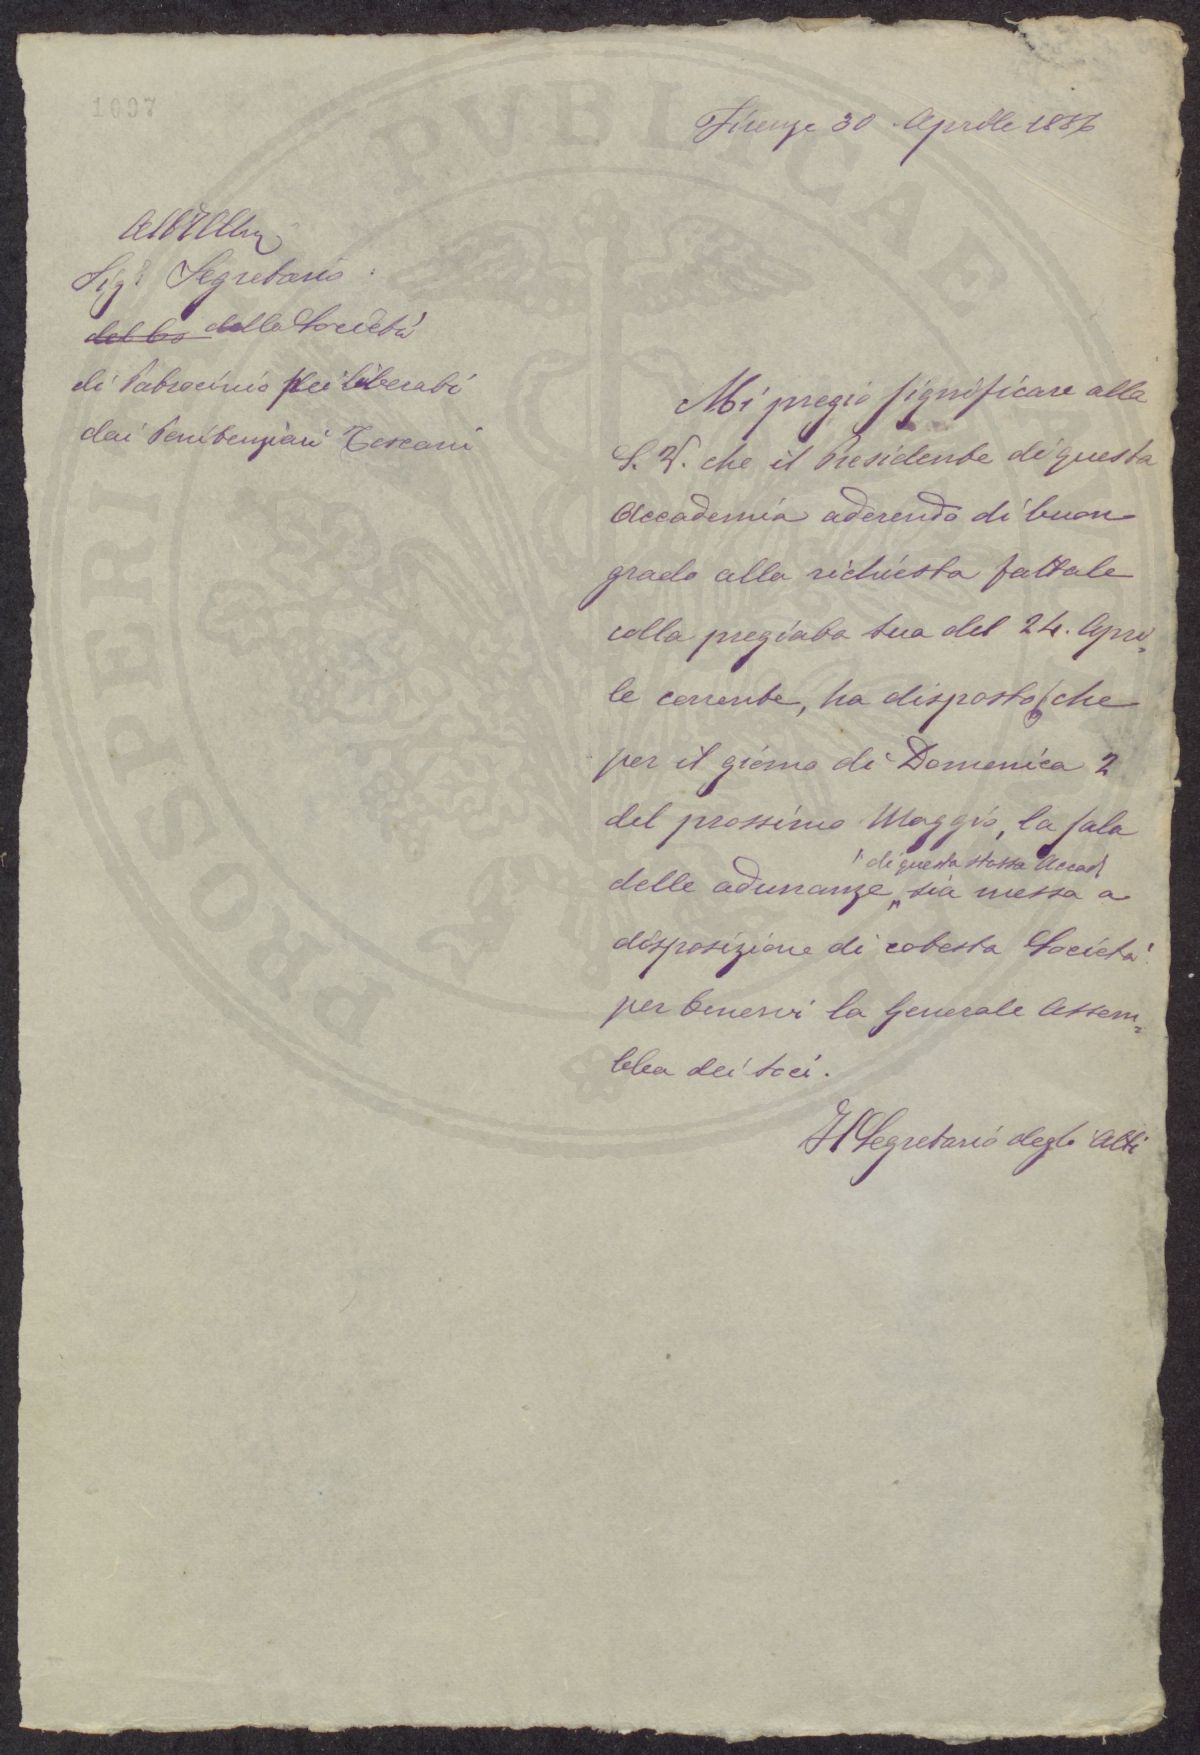 1097
Firenze 30 Aprile 1886
All'Illmo
Sigr Segretario
del Co della Società
di Patrocinio pei liberati
dai Penitenziari Toscani
Mi pregio significare alla
S. V. che il Presidente di questa
Accademia aderendo di buon
grado alla richiesta fattale
colla pregiata sua del 24. Apri
le corrente, ha disposto che
per il giorno di Domenica 2
del prossimo Maggio, la sala
di questa stessa Accad
delle adunanze sia messa a
disposizione di cotesta Società
per tenervi la Generale Assem
blea dei soci.
Il Segretario degli Atti
PROSPERITATI PVBLICAE